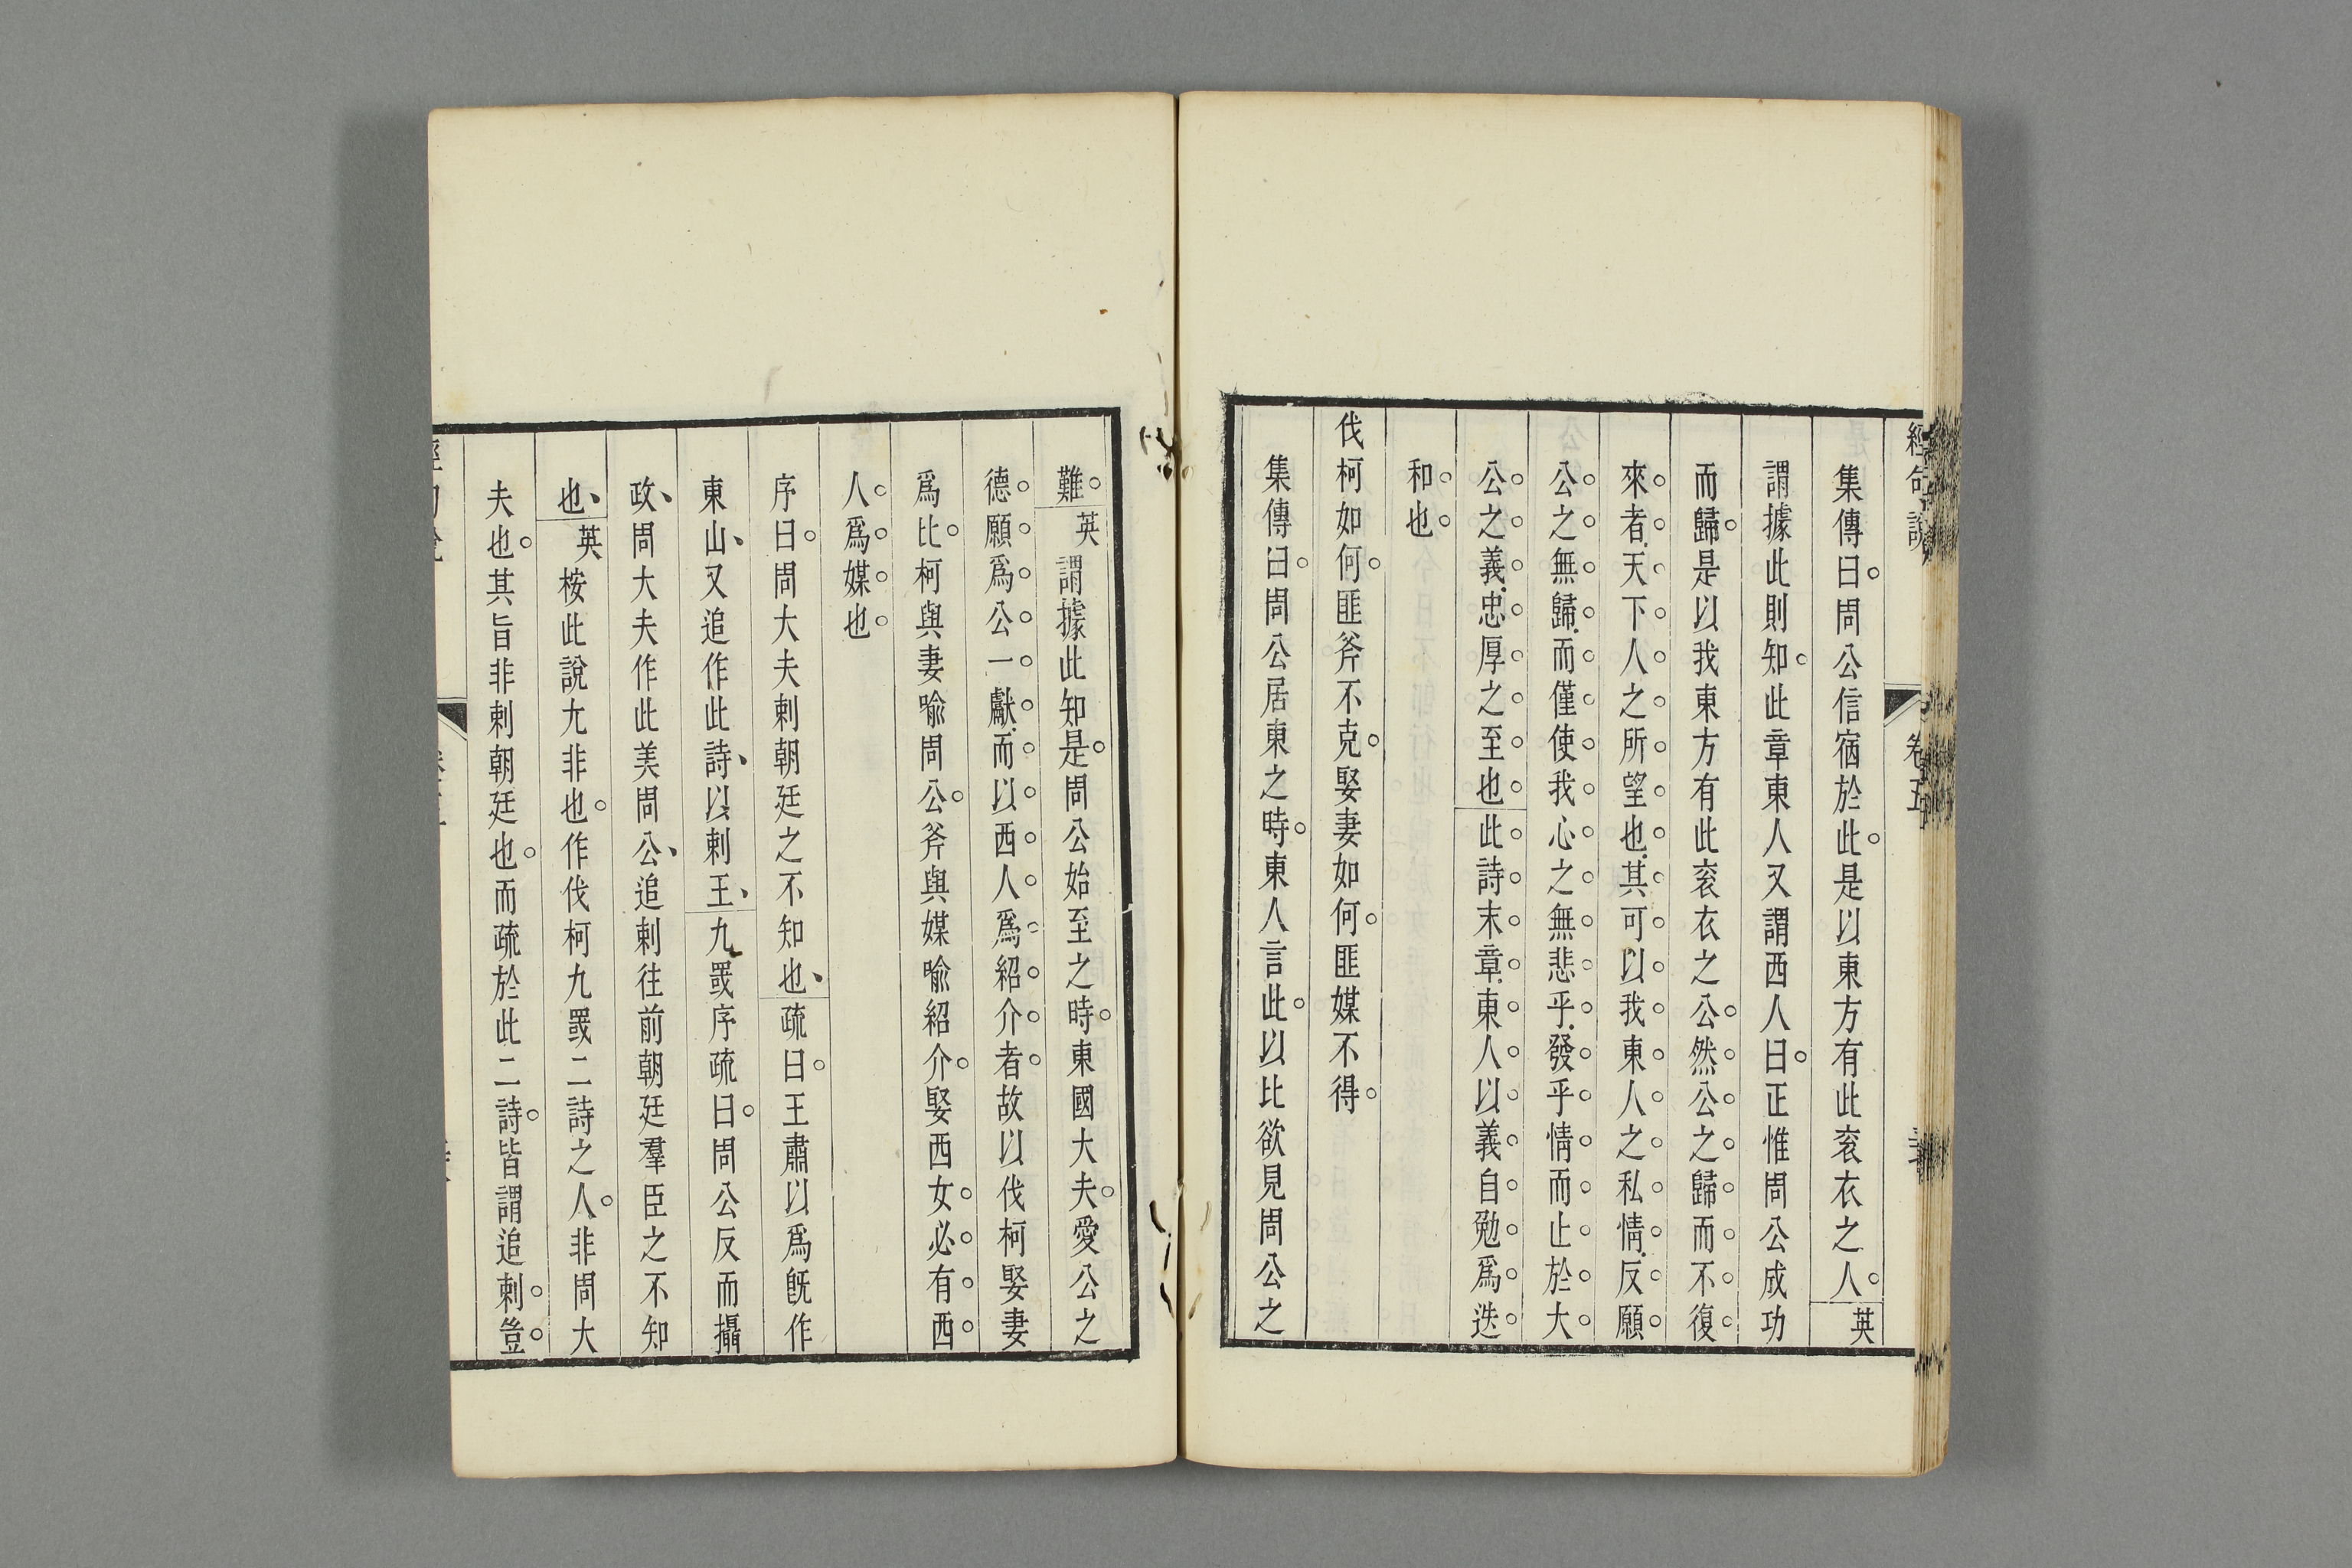 集傳曰。周公信宿於此。是以東方有此衮衣之人。英
謂據此則知。此章東人又謂西人曰。正惟周公成功
而歸。是以我東方有此衮衣之公。然公之歸而不復
來者。天下人之所望也。其可以我東人之私情。反願
公之無歸。而僅使我心之無悲乎。發乎情而止於大
公之義。忠厚之至也。此詩末章。東人以義自勉爲迭
和也。
伐柯如何。匪斧不克。娶妻如何。匪媒不得。
集傳曰。周公居東之時。東人言此。以比欲見周公之
難。英謂據此知是。周公始至之時。東國大夫。愛公之
德。願爲公一獻。而以西人爲紹介者。故以伐柯娶妻
爲比。柯與妻喩周公。斧與媒喩紹介。娶西女。必有西
人爲媒也。
序曰。周大夫刺朝廷之不知也、疏曰。王肅以爲旣作
東山、又追作此詩、以刺王、九罭序疏曰。周公反而攝
政、周大夫作此美周公、追刺往前朝廷羣臣之不知
也、英桉此說尤非也。作伐柯九罭二詩之人。非周大
夫也。其旨非刺朝廷也。而疏於此二詩。皆謂追刺。豈
卷五